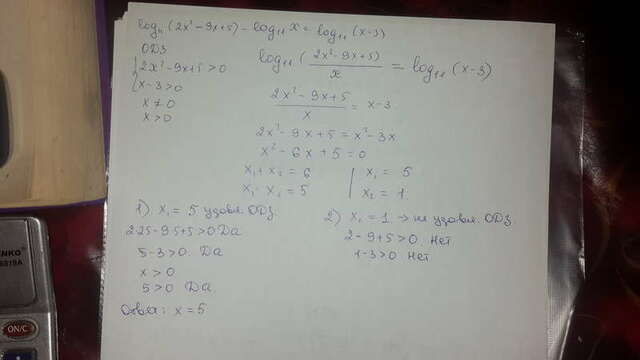 log₁₁(2x²-9x+5) - log₁₁ x = log₁₁(x-3)
ОДЗ
{ 2x²-9x+5>0
x-3>0
x≠0
x>0
log₁₁(2x²-9x+5)/x = log₁₁(x-3)
(2x²-9x+5)/x = x-3
2x²-9x+5=x²-3x
x²-6x+5=0
x₁+x₂=6
x₁·x₂=5
x₁=5
x₂=1
1) x₁=5 удовл. ОДЗ.
2·25-9·5+5>0 Да
5-3>0. Да
x>0
5>0 Да
Ответ: x=5
2) x₂=1 → не удовл. ОДЗ.
2-9+5>0. Нет
1-3>0 Нет
ENKO
6819A
ON/C